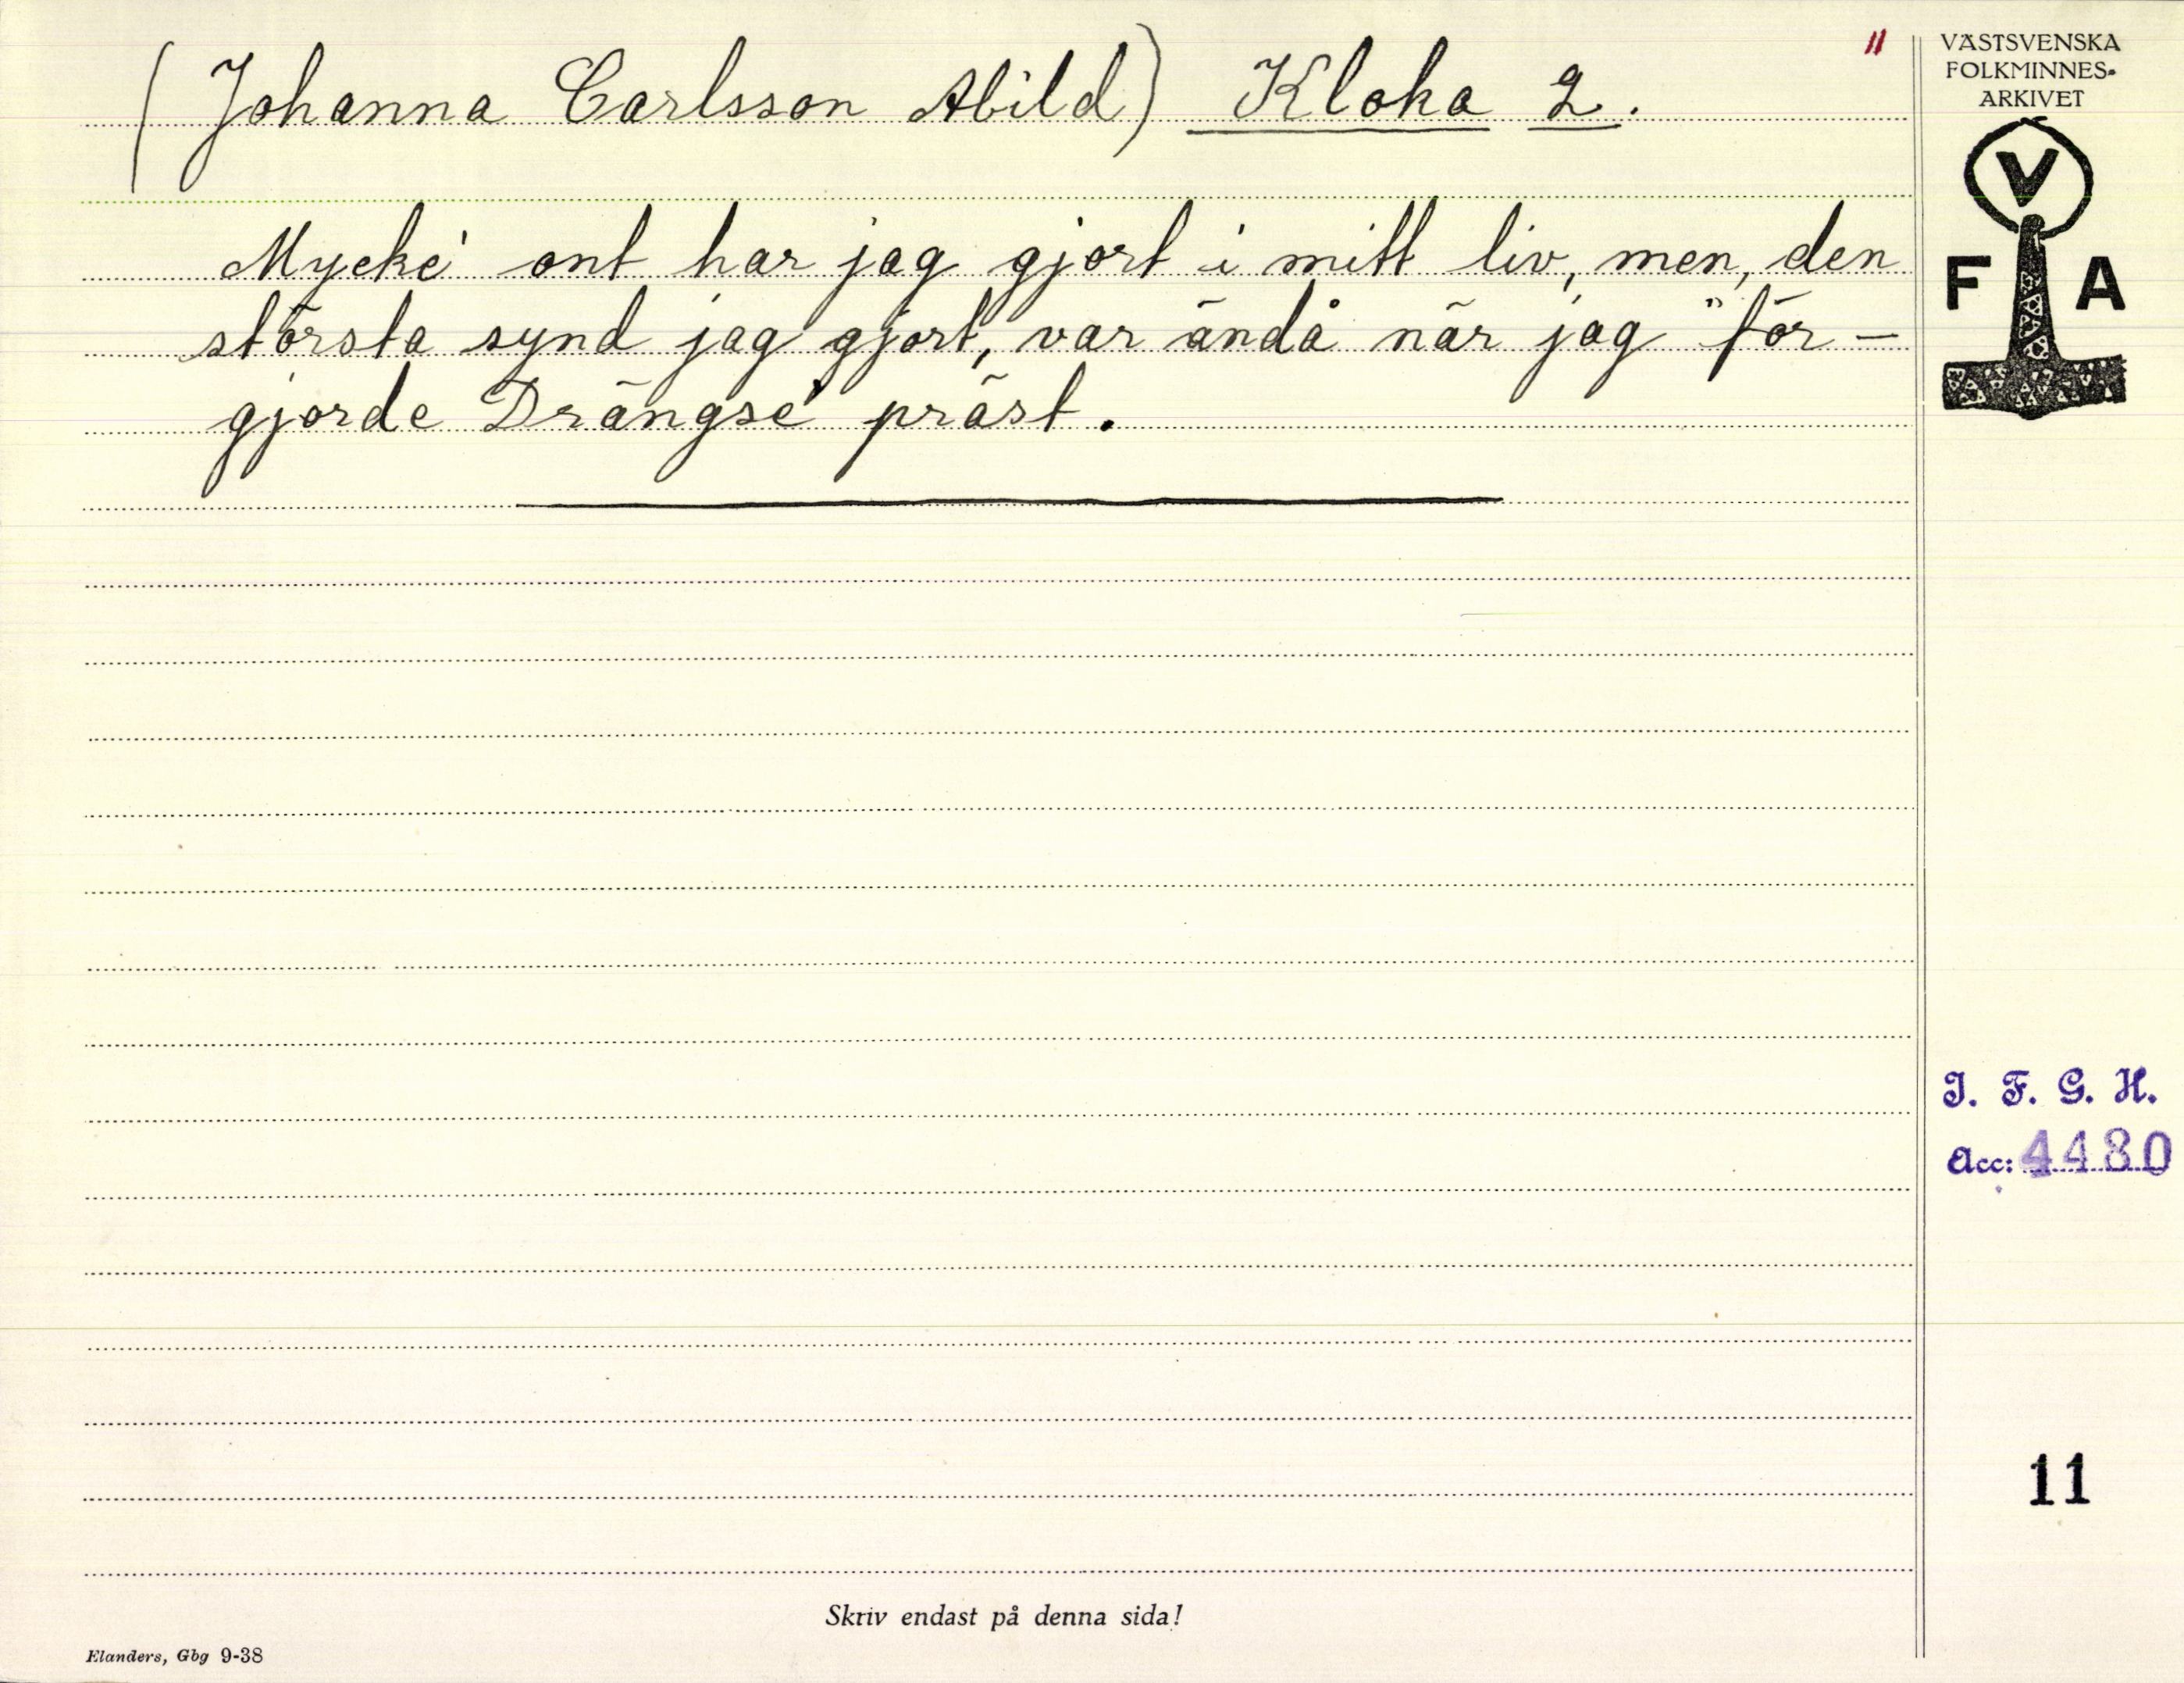 (Johanna Carlsson Abild) Kloka 2.
11
VÄSTSVENSKA
FOLKMINNES-
ARKIVET
V
F A
Mycke' ont har jag gjort i mitt liv, men, den
största synd jag gjort, var ändå när jag "för-
gjorde Drängse' präst.
I. F. G. H.
Acc: 4480
11
Skriv endast på denna sida!
Elanders, Gbg 9-38